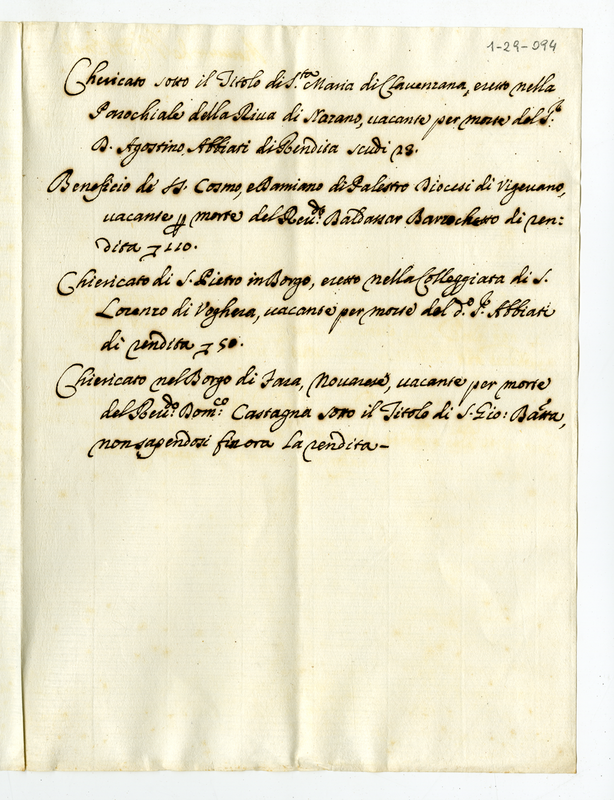 1-29-094
Chericato sotto il Titolo di S.ta Maria di Clavenzana, eretto nella
Parochiale della Riva di Nazano, vacante per morte del S.r
D. Agostino Abbiati di Rendita scudi 28.
Beneficio de' SS. Cosmo, e Damiano di Palestro Diocesi di Vigevano,
vacante p morte del Reu.do Baldassar Barrochetto di ren:
dita 110.
Chiericato di S. Pietro in Borgo, eretto nella Colleggiata di S.
Lorenzo di Voghera, vacante per morte del d.o S.r Abbiati
di rendita 50.
Chiericato nel Borgo di Fara, Novarese, vacante per morte
del Reu.do Dom.co Castagna sotto il Titolo di S. Gio: Batta,
non sapendosi fin ora la rendita -